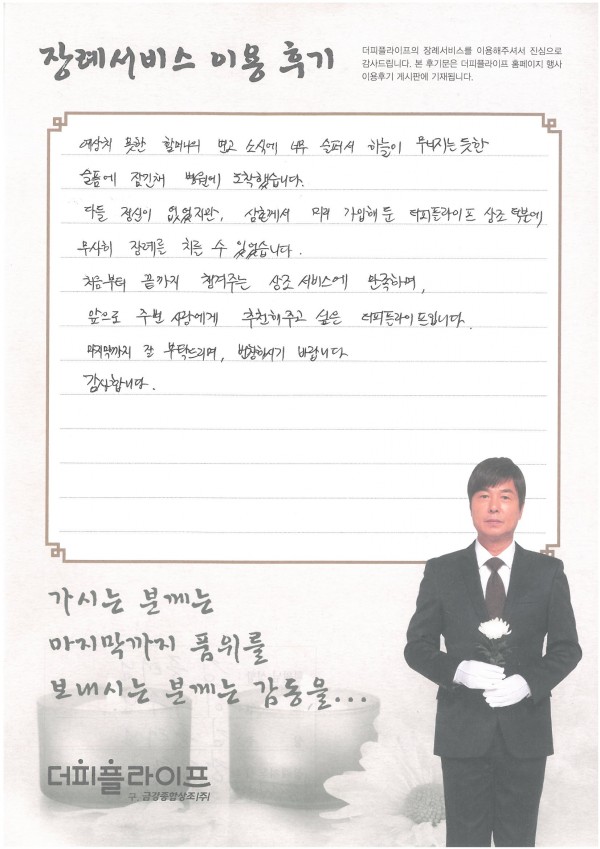 장례서비스 이용 후기
더피플라이프의 장례서비스를 이용해주셔서 진심으로
감사드립니다. 본 후기문은 더피플라이프 홈페이지 행사
이용후기 게시판에 기재됩니다.
예상치 못한 할머니의 부고 소식에 너무 슬퍼서 하늘이 무너지는 듯한
슬픔에 잠긴채 병원에 도착했습니다.
다들 정신이 없었지만, 삼촌께서 미리 가입해 둔 더피플라이프 상조 덕분에
무사히 장례를 치를 수 있었습니다.
처음부터 끝까지 챙겨주는 상조 서비스에 만족하며,
앞으로 주변 사람에게 추천해주고 싶은 더피플라이프입니다.
마지막까지 잘 부탁드리며, 번창하시기 바랍니다
감사합니다.
가시는 분께는
마지막까지 품위를
보내시는 분께는 감동을...
더피플라이프
구. 금강종합상조(주)